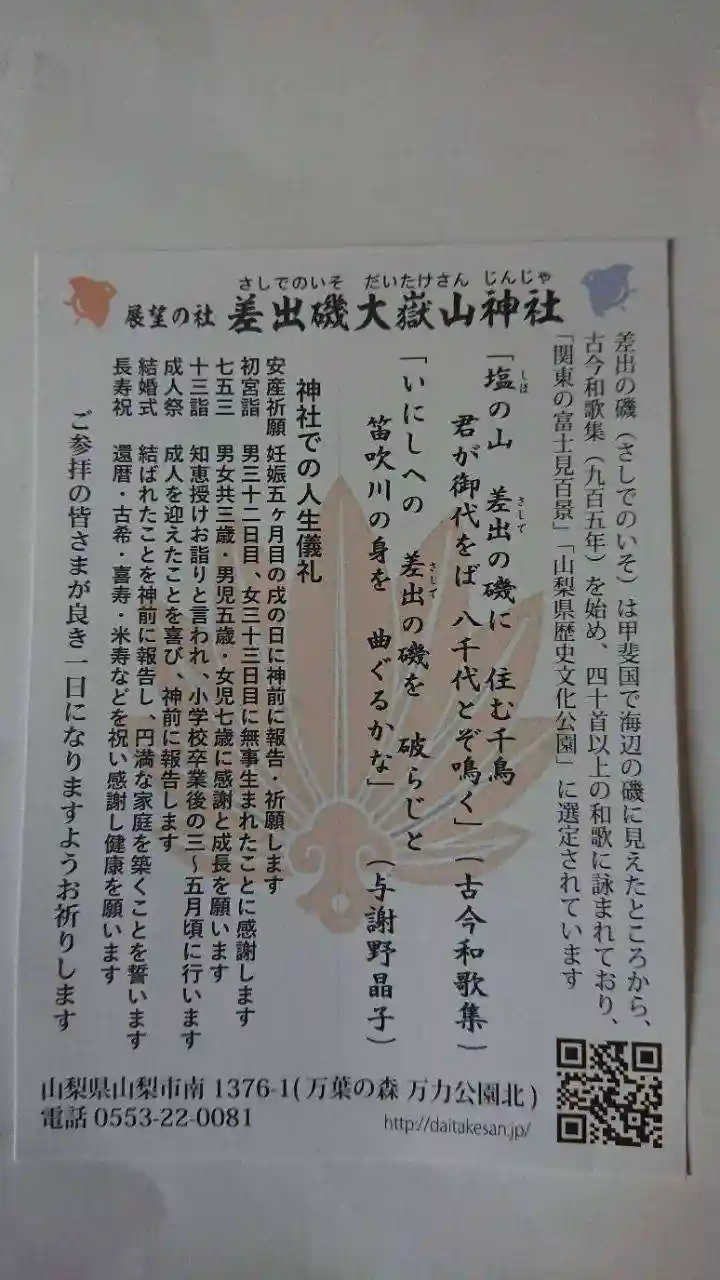 さしでのいそ だいたけさん じんじゃ
展望の社 差出磯大嶽山神社
差出の磯（さしでのいそ）は甲斐国で海辺の磯に見えたところから、
古今和歌集（九百五年）を始め、四十首以上の和歌に詠まれており、
「関東の富士見百景」「山梨県歴史文化公園」に選定されています
「塩の山 差出の磯に 住む千鳥
しほ さしで
君が御代をば 八千代とぞ鳴く」（古今和歌集）
「いにしへの 差出の磯を 破らじと
さしで
笛吹川の身を 曲ぐるかな」（与謝野晶子）
神社での人生儀礼
安産祈願 妊娠五ヶ月目の戌の日に神前に報告・祈願します
初宮詣 男三十二日目、女三十三日目に無事生まれたことに感謝します
七五三 男女共三歳・男児五歳・女児七歳に感謝と成長を願います
十三詣 知恵授けお詣りと言われ、小学校卒業後の三～五月頃に行います
成人祭 成人を迎えたことを喜び、神前に報告します
結婚式 結ばれたことを神前に報告し、円満な家庭を築くことを誓います
長寿祝 還暦・古希・喜寿・米寿などを祝い感謝し健康を願います
ご参拝の皆さまが良き一日になりますようお祈りします
山梨県山梨市南 1376-1(万葉の森 万力公園北)
電話 0553-22-0081
http://daitakesan.jp/